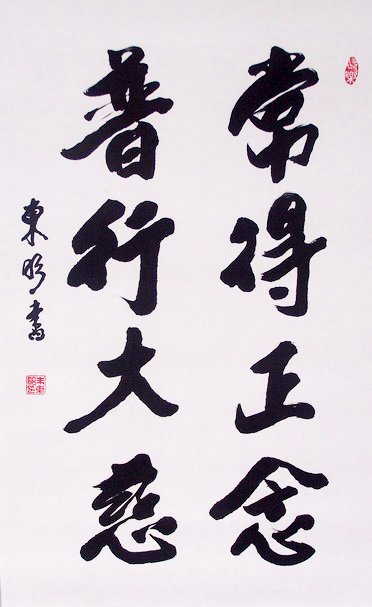 常得正念
普行大慈
東明書